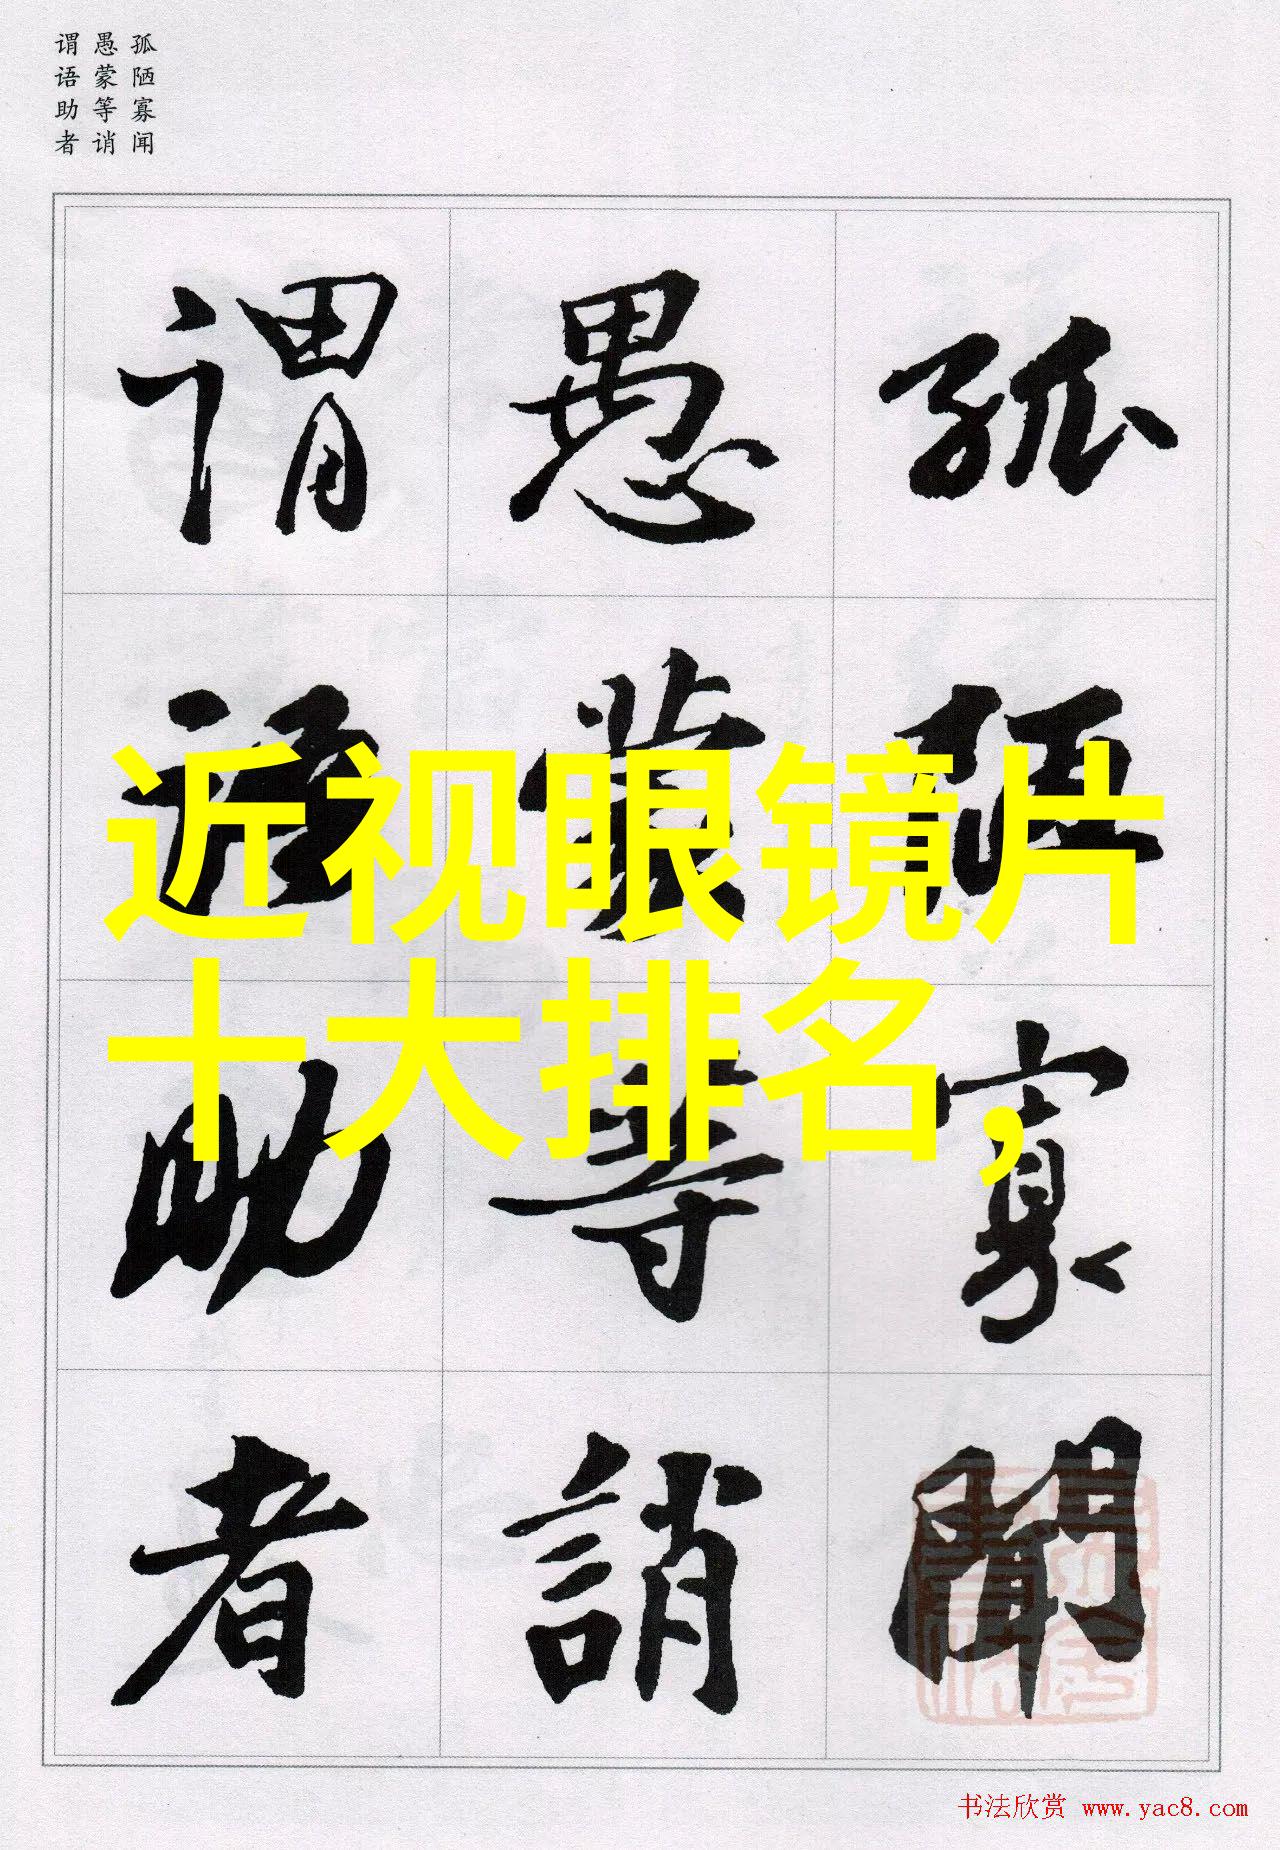 孤陋寡闻
愚蒙等诮
谓语助者
孤陋寡闻
愚蒙等誚
谓语助者
近视眼镜片
十大排名,
书法欣赏 www.yac8.com